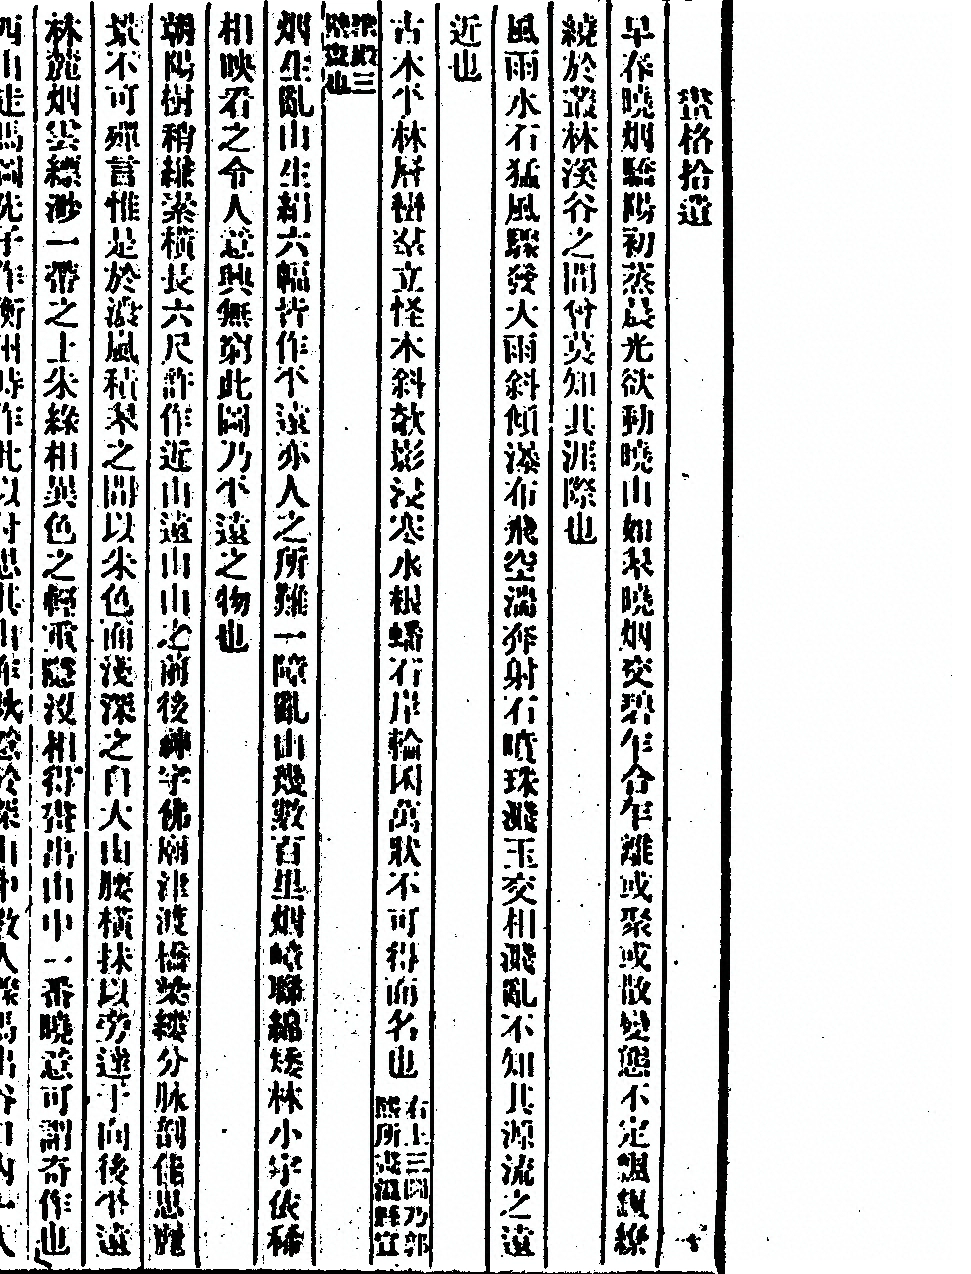 畫格拾遺
早春曉烟驕陽初蒸晨光欲動曉山如翠曉烟交碧乍合乍離或聚或散變態不定飄颻繚
繞於叢林溪谷之間曾莫知其涯際也
風雨水石猛風驟發大雨斜傾瀑布飛空湍奔射石噴珠濺玉交相濺亂不知其源流之遠
近也
古木平林層巒羣立怪木斜欹影浸寒水根蟠石岸輪囷萬狀不可得而名也 右上三圖乃郭熙所畫溫縣宣
聖殿三陛壺也
烟生亂山生絹六幅皆作平遠亦人之所難一障亂山幾數百里烟嶂聯綿矮林小宇依稀
相映看之令人意興無窮此圖乃平遠之物也
朝陽樹稍縑素橫長六尺許作近山遠山山之前後神宇佛廟津渡橋梁縷分脉剖佳思麗
景不可殫言惟是於濃嵐積翠之間以朱色而淺深之自大山腰橫抹以旁達于向後平遠
林麓烟雲縹渺一帶之上朱綠相異色之輕重隱沒相得畫出山中一番曉意可謂奇作也
西山走馬圖先子作衡州時作此以付思其山作秋意於深山中數人驟馬出谷口內一人